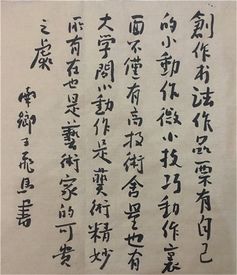 創作书法作品要有自己
的小動作微小技巧動作裏
面不僅有高技術含量也有
大学問小動作是藝術精妙
所有在也是藝術家的可贵
之處
南鄉王飛馬書